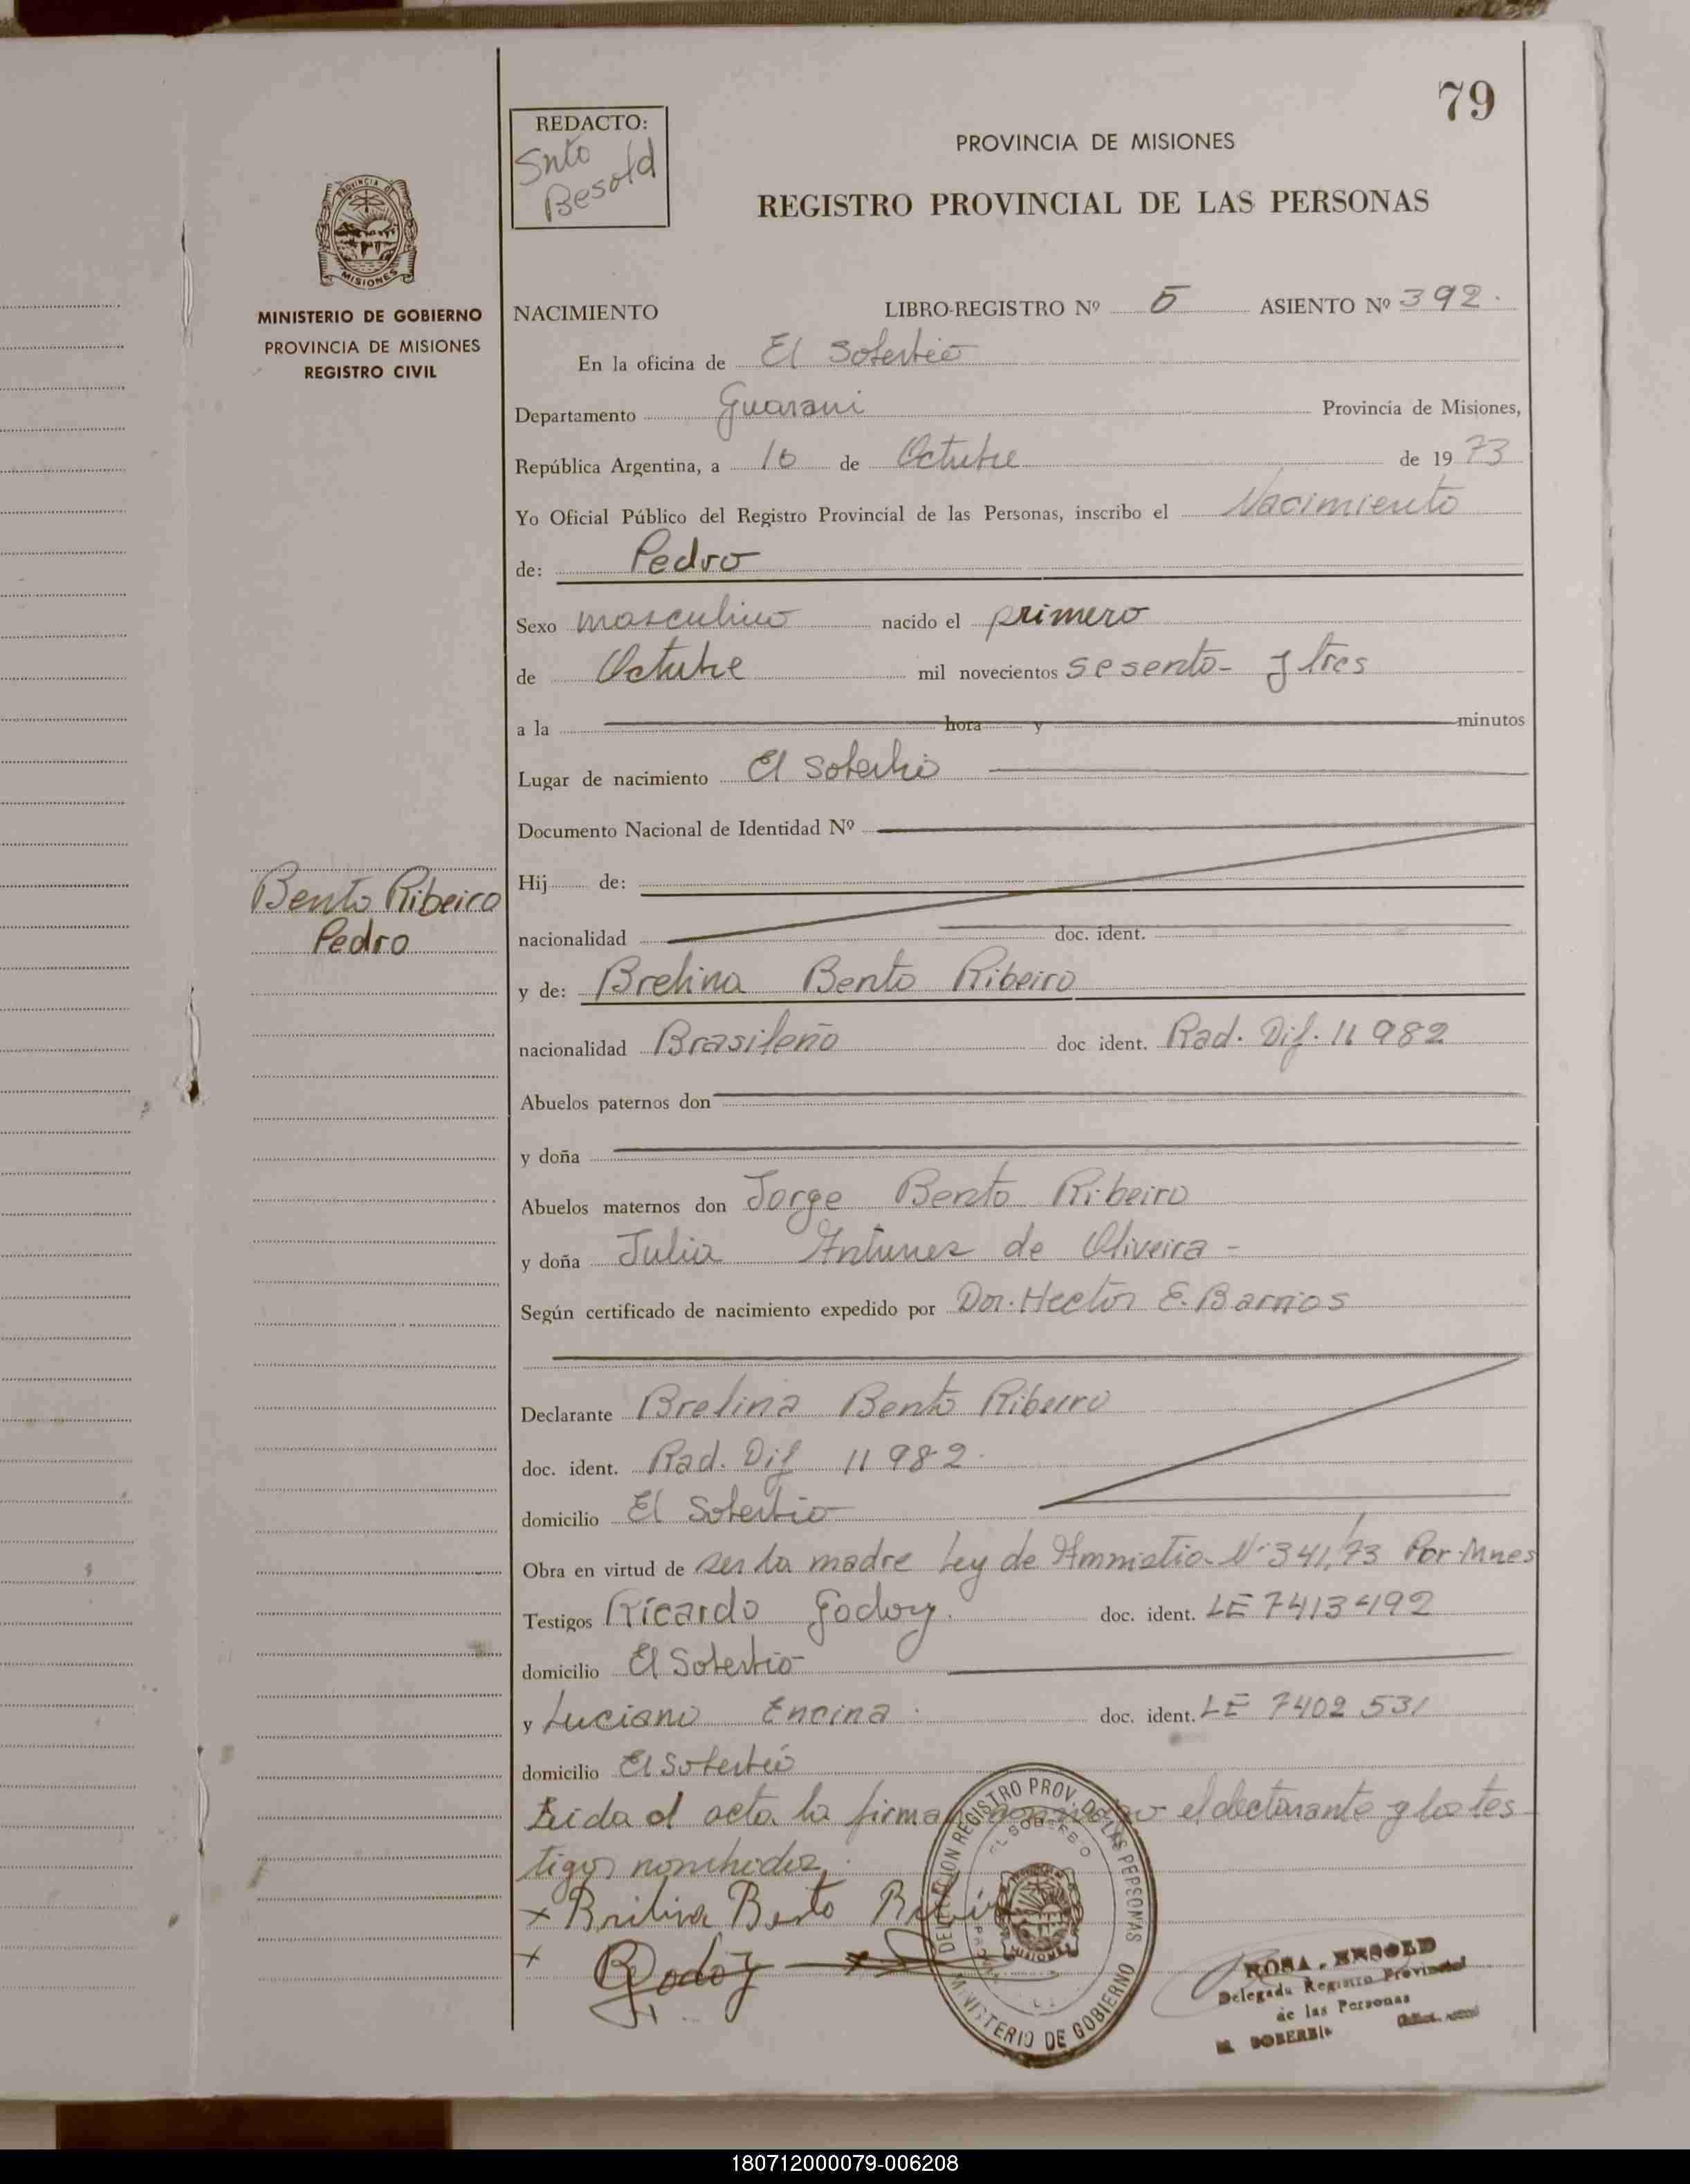 79
REDACTO:
Snto
Besold
PROVINCIA DE MISIONES
REGISTRO PROVINCIAL DE LAS PERSONAS
PROVINCIA DE
MISIONES
MINISTERIO DE GOBIERNO
PROVINCIA DE MISIONES
REGISTRO CIVIL
NACIMIENTO LIBRO-REGISTRO Nº 5 ASIENTO Nº 392.
En la oficina de El Soberbio
Departamento Guarani Provincia de Misiones,
República Argentina, a 10 de Octubre de 1973
Yo Oficial Público del Registro Provincial de las Personas, inscribo el Nacimiento
de: Pedro
Sexo masculino nacido el primero
de Octubre mil novecientos sesenta y tres
a la hora y minutos
Lugar de nacimiento El Soberbio
Documento Nacional de Identidad Nº
Bento Ribeiro
Pedro
Hij de:
nacionalidad doc. ident.
y de: Brelina Bento Ribeiro
nacionalidad Brasileño doc ident. Rad. Dif. 11982
Abuelos paternos don
y doña
Abuelos maternos don Jorge Bento Ribeiro
y doña Julia Antunez de Oliveira -
Según certificado de nacimiento expedido por Dor. Hector E. Barrios
Declarante Brelina Bento Ribeiro
doc. ident. Rad. Dif 11982.
domicilio El Soberbio
Obra en virtud de ser la madre Ley de Amnistia Nº 341/73 Por Mnes
Testigos Ricardo Godoy. doc. ident. LE 7413492
domicilio El Soberbio
y Luciano Encina. doc. ident. LE 7402531
domicilio El Soberbio
Leida el acta la firma el declarante y los tes-
tigos nombrados.
x Brilina Bento
x Godoy x
DELEGACION REGISTRO PROV. DE LAS PERSONAS
EL SOBERBIO
MISIONES
MINISTERIO DE GOBIERNO
ROSA . BESOLD
Delegada Registro Provincial
de las Personas
EL SOBERBIO
180712000079-006208